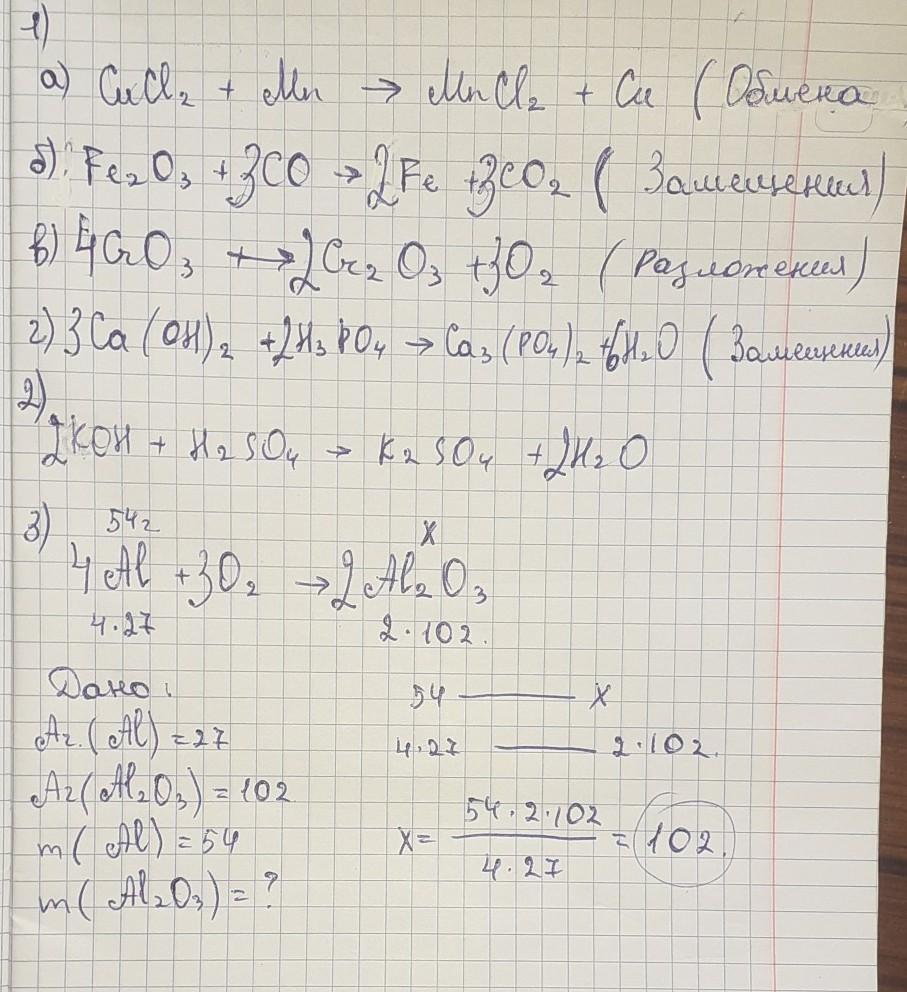 1)
а) CuCl₂ + Mn → MnCl₂ + Cu (Обмена
б) Fe₂O₃ + 3CO → 2Fe + 3CO₂ ( Замещения)
в) 4CrO₃ +→ 2Cr₂O₃ + 3O₂ ( Разложения)
г) 3Ca(OH)₂ + 2H₃PO₄ → Ca₃(PO₄)₂ + 6H₂O ( Замещения)
2)
2KOH + H₂SO₄ → K₂SO₄ + 2H₂O
3) 54г X
4Al + 3O₂ → 2Al₂O₃
4·27 2·102.
Дано:
54 — X
Ar.(Al) = 27
4·27 — 2·102.
Ar(Al₂O₃) = 102
m( Al) = 54
x = 54·2·102 / 4·27 = 102.
m( Al₂O₃) = ?